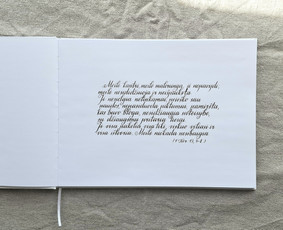 Meilė kantri, meilė maloninga, ji nepavydi;
meilė nesididžiuoja ir neišpuiksta.
Ji nesielgia netinkamai, neieško sau
naudos, nepasiduoda piktumui, pamiršta,
kas buvo bloga, nesidžiaugia neteisybe,
su džiaugsmu pritaria tiesai.
Ji visa pakelia, visa tiki, viskuo viliasi ir
visa ištveria. Meilė niekada nesibaigia.